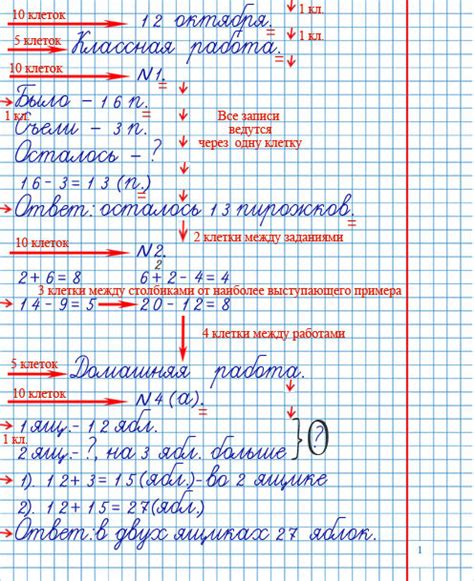 10 клеток 12 октября. 1 кл.
5 клеток Классная работа. 1 кл.
10 клеток №1.
Было – 16 п.
1 кл. Съели – 3 п. Все записи
ведутся
Осталось – ? через одну клетку
16 - 3 = 13 (п.)
Ответ: осталось 13 пирожков.
2 клетки между заданиями
10 клеток №2.
2
2 + 6 = 8 6 + 2 - 4 = 4
3 клетки между столбиками от наиболее выступающего примера
14 - 9 = 5 20 - 12 = 8
4 клетки между работами
5 клеток Домашняя работа.
10 клеток №4(а).
1 ящ. - 12 ябл.
1 кл. ?
2 ящ. - ?, на 3 ябл. больше
1). 12 + 3 = 15 (ябл.) - во 2 ящике
2). 12 + 15 = 27 (ябл.)
Ответ: в двух ящиках 27 яблок.
1